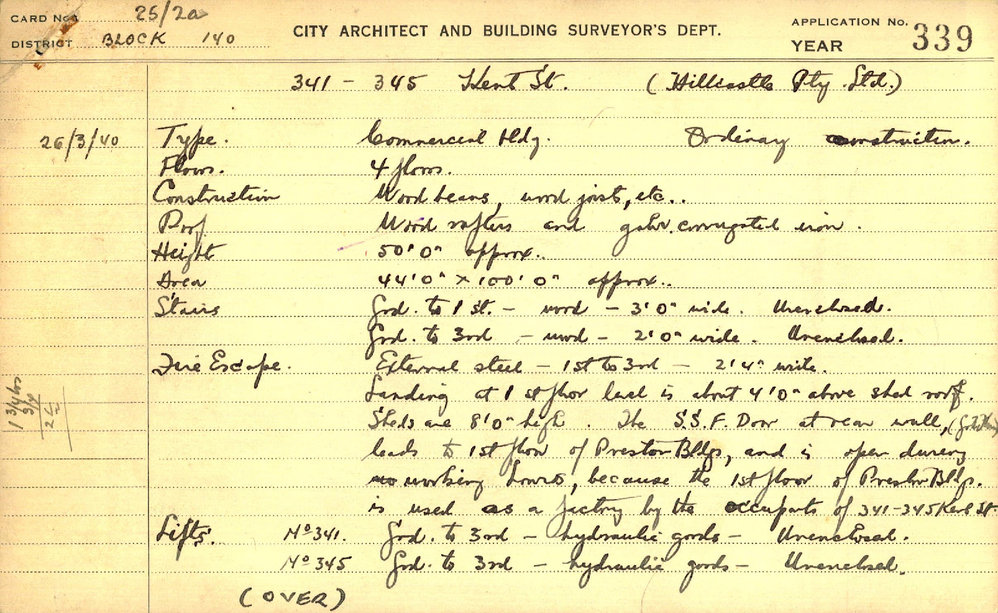 CARD No. 25/2a
DISTRICT BLOCK 140
CITY ARCHITECT AND BUILDING SURVEYOR'S DEPT.
APPLICATION No.
YEAR
339
341 - 345 Kent St. (Hillcastle Pty. Ltd.)
26/3/40 Type. Commercial bldg. Ordinary construction.
Floors. 4 floors.
Construction Wood beams, wood joist, etc..
Roof Wood rafters and galv. corrugated iron.
Height 50'0" approx..
Area 44'0" x 100'0" approx..
Stairs Grd. to 1st. - wood - 3'0" wide. Unenclosed.
Grd. to 3rd - wood - 2'0" wide. Unenclosed.
Fire Escape. External steel - 1st to 3rd - 2'4" wide.
Landing at 1st floor level is about 4'0" above shed roof.
Sheds are 8'0" high. The S.S.F. Door at rear wall,
leads to 1st floor of Preston Bldgs, and is open during
working hours, because the 1st floor of Preston Bldgs.
is used as a factory by the occupants of 341-345 Kent St.
1 3/4 hrs
3/4
Lifts. No 341. Grd. to 3rd - hydraulic goods - Unenclosed.
No 345 Grd. to 3rd - hydraulic goods - Unenclosed.
(OVER)